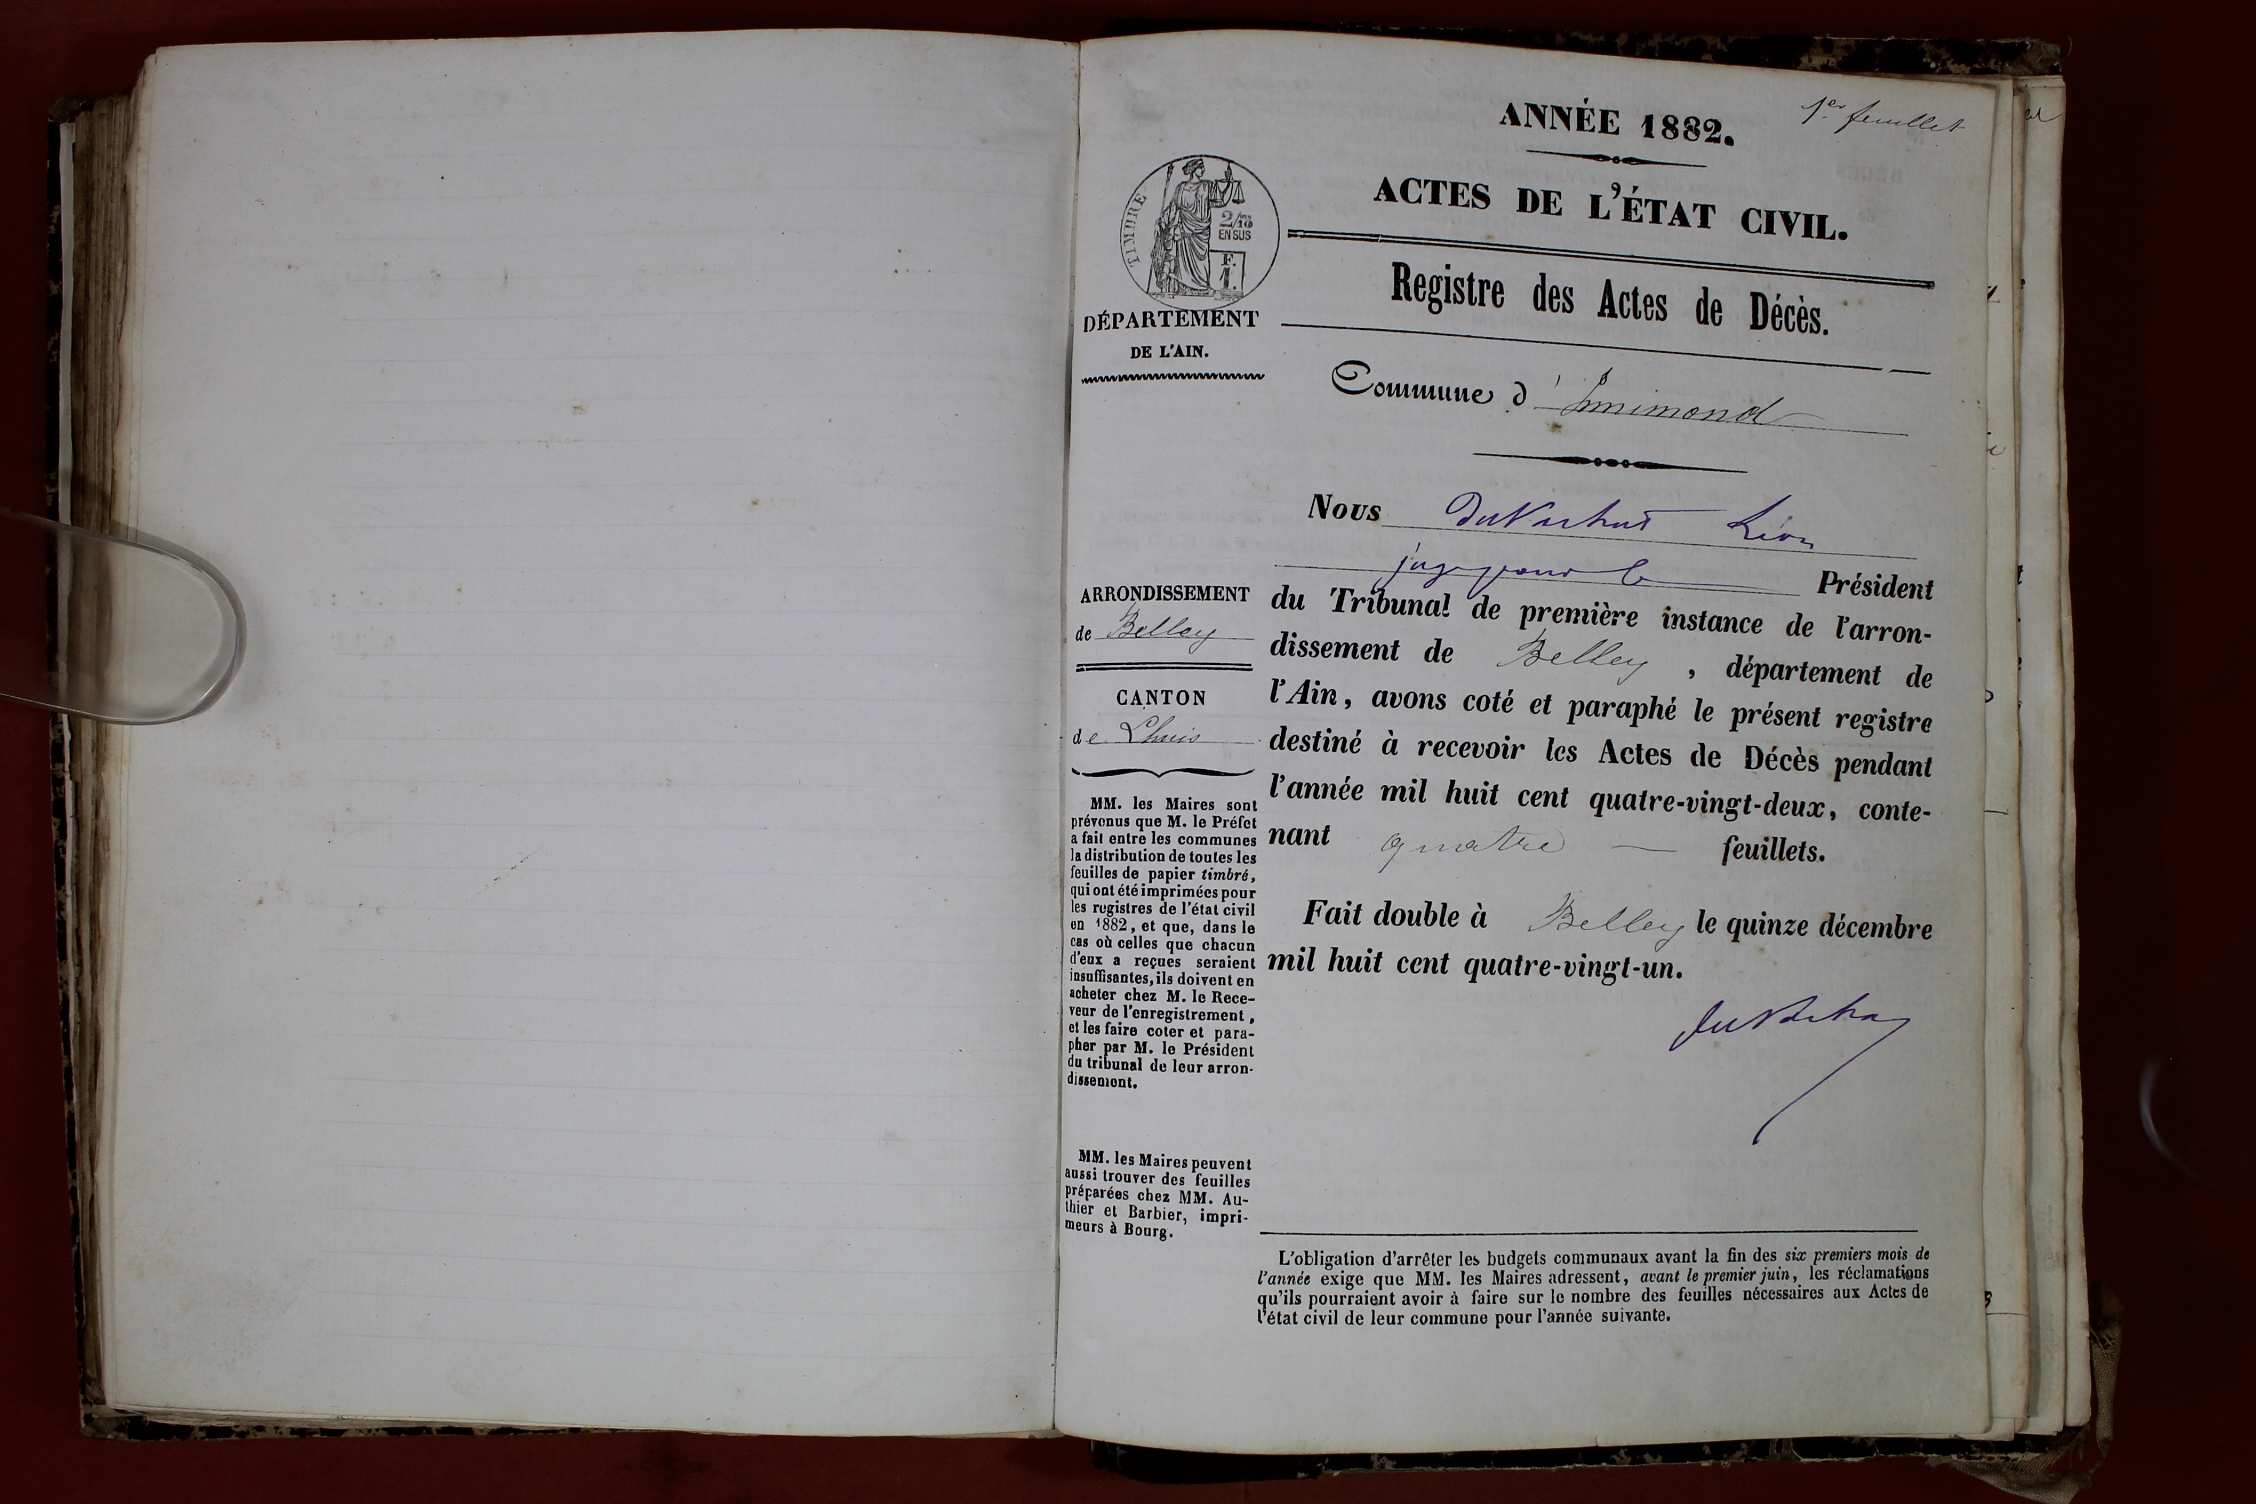 1er feuillet
ANNÉE 1882.
ACTES DE L'ÉTAT CIVIL.
TIMBRE
2/10
EN SUS
F.
1.
DÉPARTEMENT
DE L'AIN.
Registre des Actes de Décès.
Commune d'Innimond
Nous Léon
juge pour le Président
du Tribunal de première instance de l'arron-
dissement de Belley, département de
l'Ain, avons coté et paraphé le présent registre
destiné à recevoir les Actes de Décès pendant
l'année mil huit cent quatre-vingt-deux, conte-
nant quatre — feuillets.
Fait double à Belley le quinze décembre
mil huit cent quatre-vingt-un.
ARRONDISSEMENT
de Belley
CANTON
de Lhuis
MM. les Maires sont
prévenus que M. le Préfet
a fait entre les communes
la distribution de toutes les
feuilles de papier timbré,
qui ont été imprimées pour
les registres de l'état civil
en 1882, et que, dans le
cas où celles que chacun
d'eux a reçues seraient
insuffisantes, ils doivent en
acheter chez M. le Rece-
veur de l'enregistrement,
et les faire coter et para-
pher par M. le Président
du tribunal de leur arron-
dissement.
MM. les Maires peuvent
aussi trouver des feuilles
préparées chez MM. Au-
thier et Barbier, impri-
meurs à Bourg.
L'obligation d'arrêter les budgets communaux avant la fin des six premiers mois de
l'année exige que MM. les Maires adressent, avant le premier juin, les réclamations
qu'ils pourraient avoir à faire sur le nombre des feuilles nécessaires aux Actes de
l'état civil de leur commune pour l'année suivante.